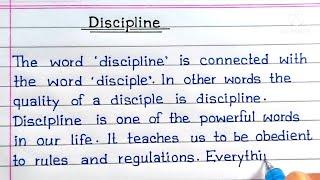 Discipline
The word 'discipline' is connected with
the word 'disciple'. In other words the
quality of a disciple is discipline.
Discipline is one of the powerful words
in our life. It teaches us to be obedient
to rules and regulations. Everythi